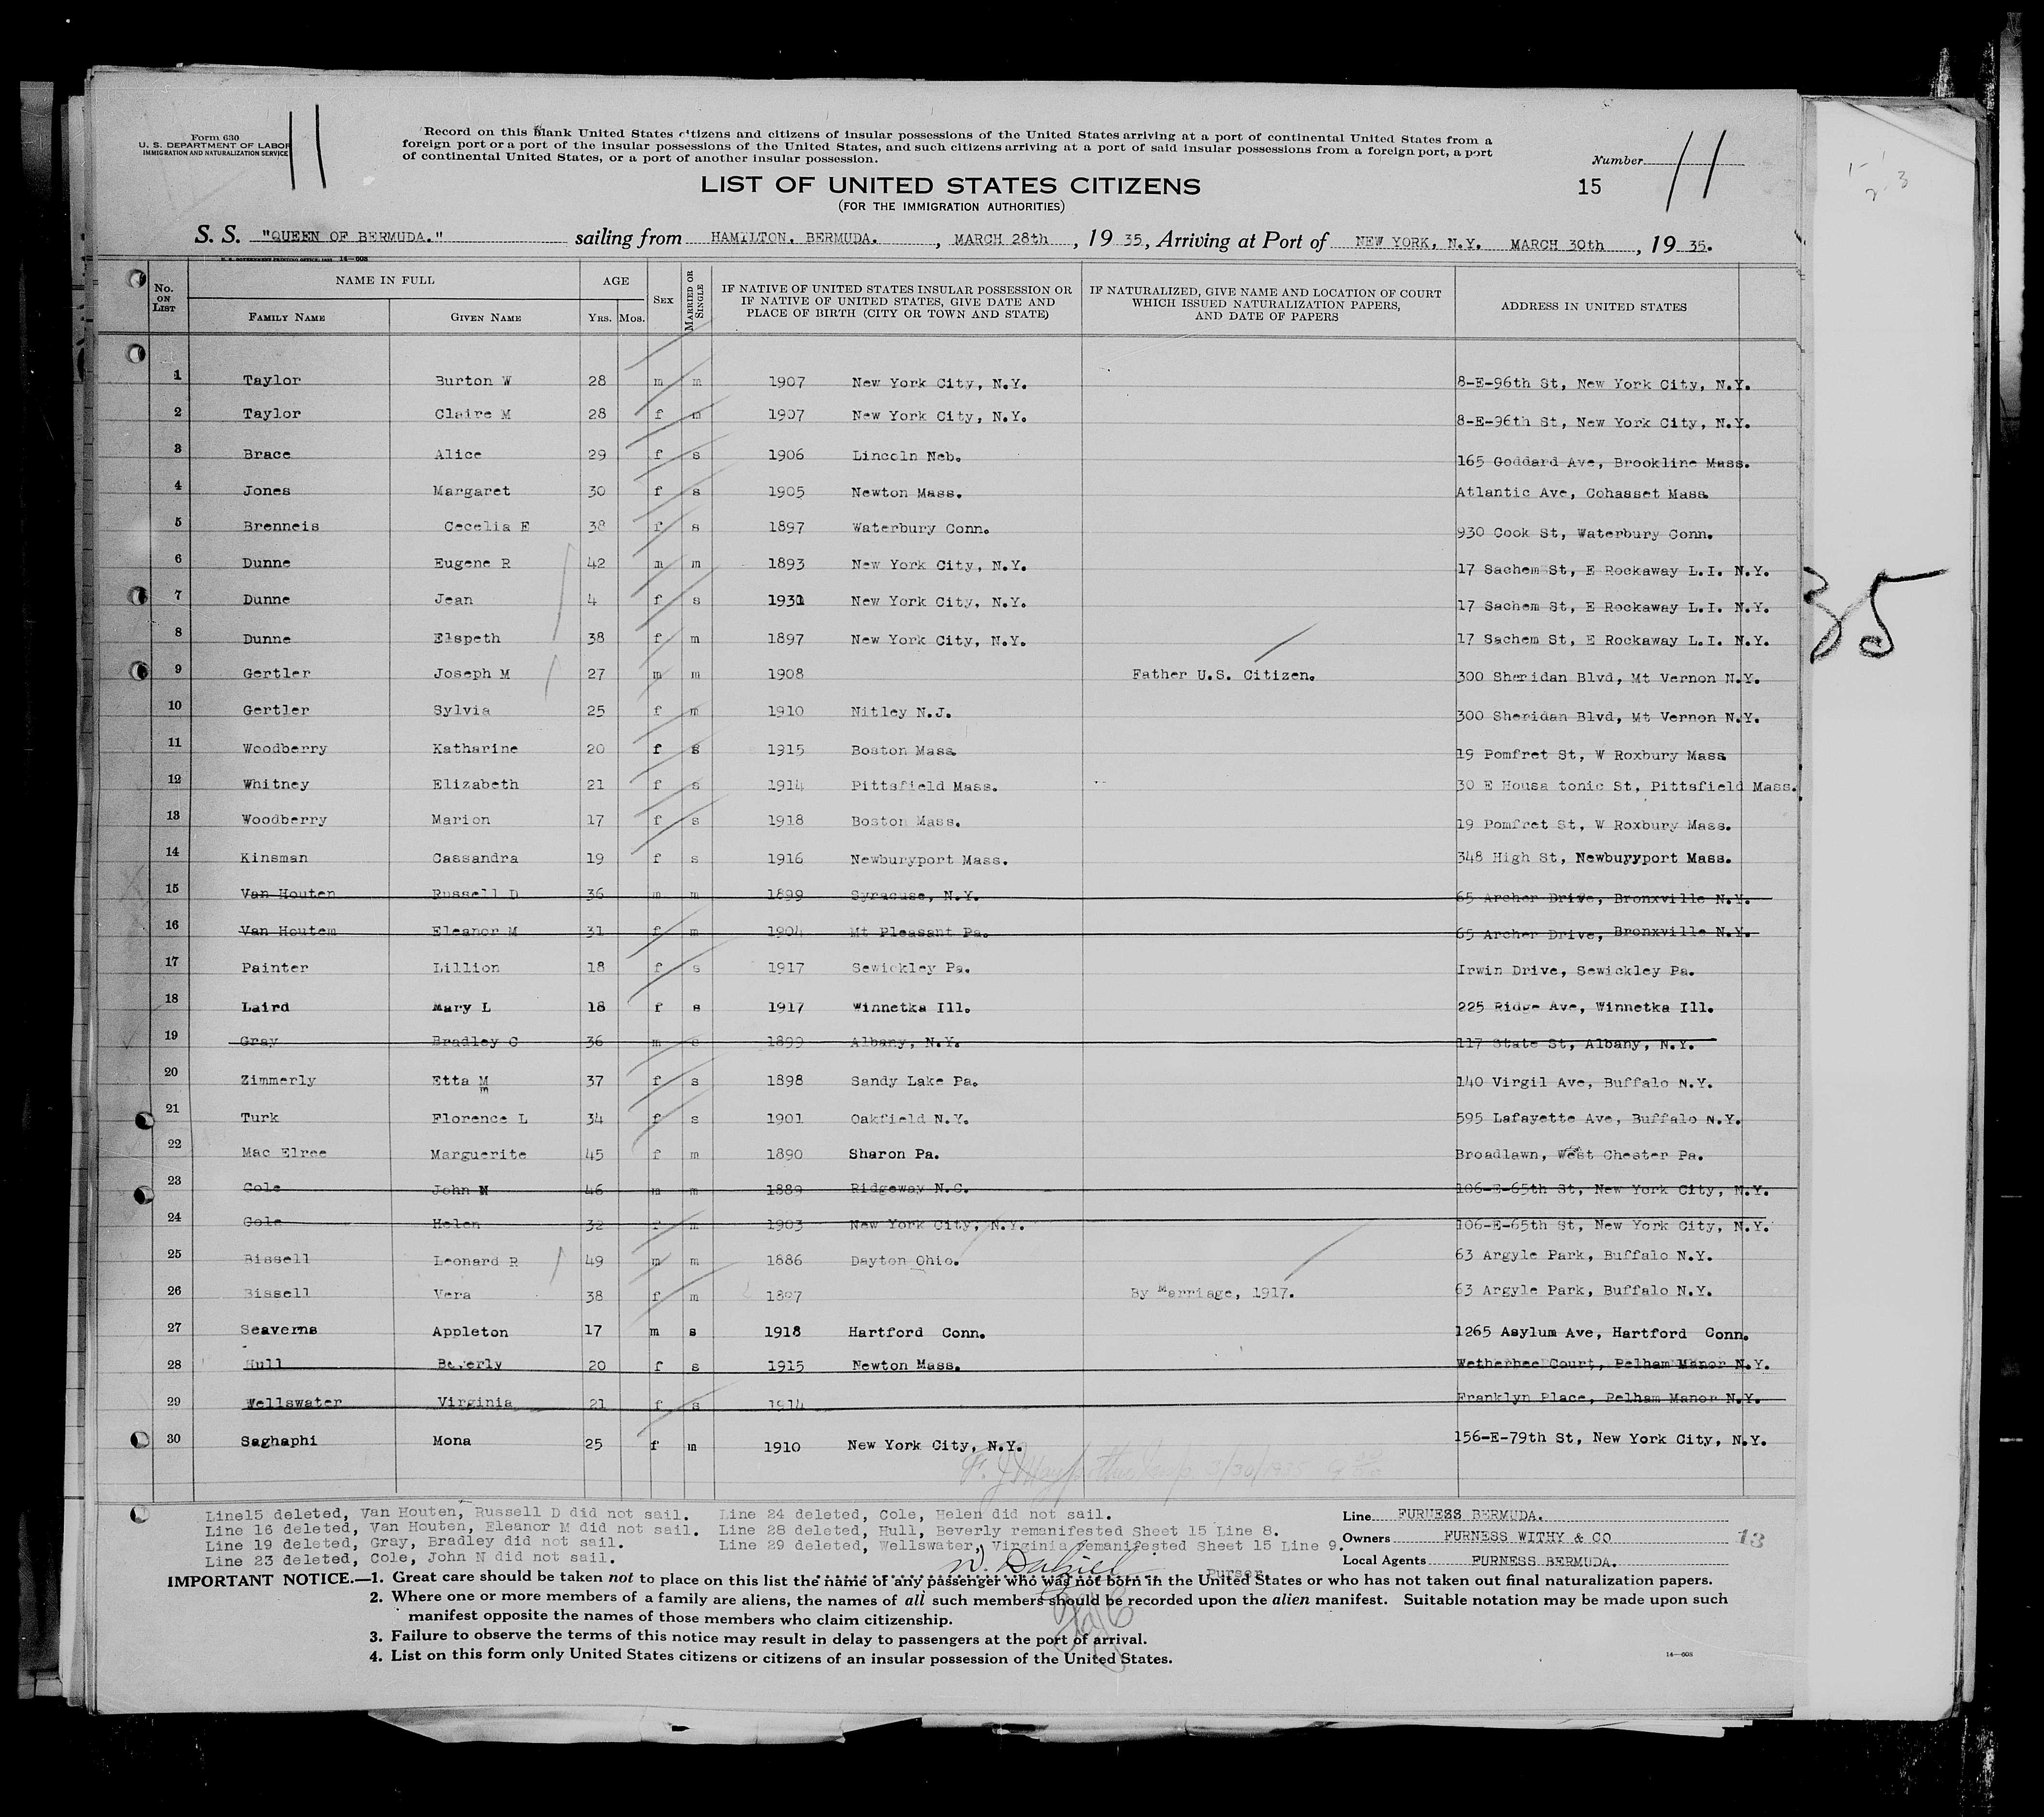 Form 630
U. S. DEPARTMENT OF LABOR
IMMIGRATION AND NATURALIZATION SERVICE
11
Record on this blank United States citizens and citizens of insular possessions of the United States arriving at a port of continental United States from a
foreign port or a port of the insular possessions of the United States, and such citizens arriving at a port of said insular possessions from a foreign port, a port
of continental United States, or a port of another insular possession.
Number 11
15
LIST OF UNITED STATES CITIZENS
(FOR THE IMMIGRATION AUTHORITIES)
S. S. "QUEEN OF BERMUDA." sailing from HAMILTON. BERMUDA., MARCH 28th, 19 35, Arriving at Port of NEW YORK, N.Y. MARCH 30th, 19 35.
No. ON LIST NAME IN FULL FAMILY NAME GIVEN NAME AGE YRS. MOS. SEX MARRIED OR SINGLE IF NATIVE OF UNITED STATES INSULAR POSSESSION OR IF NATIVE OF UNITED STATES, GIVE DATE AND PLACE OF BIRTH (CITY OR TOWN AND STATE) IF NATURALIZED, GIVE NAME AND LOCATION OF COURT WHICH ISSUED NATURALIZATION PAPERS, AND DATE OF PAPERS ADDRESS IN UNITED STATES
1 Taylor Burton W 28 m m 1907 New York City, N.Y. 8-E-96th St, New York City, N.Y.
2 Taylor Claire M 28 f m 1907 New York City, N.Y. 8-E-96th St, New York City, N.Y.
3 Brace Alice 29 f s 1906 Lincoln Neb. 165 Goddard Ave, Brookline Mass.
4 Jones Margaret 30 f s 1905 Newton Mass. Atlantic Ave, Cohasset Mass
5 Brenneis Cecelia E 38 f s 1897 Waterbury Conn. 930 Cook St, Waterbury Conn.
6 Dunne Eugene R 42 m m 1893 New York City, N.Y. 17 Sachem St, E Rockaway L.I. N.Y.
7 Dunne Jean 4 f s 1931 New York City, N.Y. 17 Sachem St, E Rockaway L.I. N.Y.
8 Dunne Elspeth 38 f m 1897 New York City, N.Y. 17 Sachem St, E Rockaway L.I. N.Y.
9 Gertler Joseph M 27 m m 1908 Father U.S. Citizen. 300 Sheridan Blvd, Mt Vernon N.Y.
10 Gertler Sylvia 25 f m 1910 Nitley N.J. 300 Sheridan Blvd, Mt Vernon N.Y.
11 Woodberry Katharine 20 f s 1915 Boston Mass 19 Pomfret St, W Roxbury Mass
12 Whitney Elizabeth 21 f s 1914 Pittsfield Mass. 30 E Housa tonic St, Pittsfield Mass.
13 Woodberry Marion 17 f s 1918 Boston Mass. 19 Pomfret St, W Roxbury Mass.
14 Kinsman Cassandra 19 f s 1916 Newburyport Mass. 348 High St, Newburyport Mass.
15 Van Houten Russell D 36 m m 1899 Syracuse, N.Y. 65 Archer Drive, Bronxville N.Y.
16 Van Houtem Eleanor M 31 f m 1904 Mt Pleasant Pa. 65 Archer Drive, Bronxville N.Y.
17 Painter Lillion 18 f s 1917 Sewickley Pa. Irwin Drive, Sewickley Pa.
18 Laird Mary L 18 f s 1917 Winnetka Ill. 225 Ridge Ave, Winnetka Ill.
19 Gray Bradley C 36 m s 1899 Albany, N.Y. 117 State St, Albany, N.Y.
20 Zimmerly Etta M 37 f s 1898 Sandy Lake Pa. 140 Virgil Ave, Buffalo N.Y.
21 Turk Florence L 34 f s 1901 Oakfield N.Y. 595 Lafayette Ave, Buffalo N.Y.
22 Mac Elree Marguerite 45 f m 1890 Sharon Pa. Broadlawn, West Chester Pa.
23 Cole John N 46 m m 1889 Ridgeway N.C. 106-E-65th St, New York City, N.Y.
24 Cole Helen 32 f m 1903 New York City, N.Y. 106-E-65th St, New York City, N.Y.
25 Bissell Leonard R 49 m m 1886 Dayton Ohio. 63 Argyle Park, Buffalo N.Y.
26 Bissell Vera 38 f m 1897 By Marriage, 1917. 63 Argyle Park, Buffalo N.Y.
27 Seaverns Appleton 17 m s 1918 Hartford Conn. 1265 Asylum Ave, Hartford Conn.
28 Hull Beverly 20 f s 1915 Newton Mass. Wetherbee Court, Pelham Manor N.Y.
29 Wellswater Virginia 21 f s 1914 Franklyn Place, Pelham Manor N.Y.
30 Saghaphi Mona 25 f m 1910 New York City, N.Y. 156-E-79th St, New York City, N.Y.
3/30/1935
35
Line15 deleted, Van Houten, Russell D did not sail. Line 24 deleted, Cole, Helen did not sail.
Line 16 deleted, Van Houten, Eleanor M did not sail. Line 28 deleted, Hull, Beverly remanifested Sheet 15 Line 8.
Line 19 deleted, Gray, Bradley did not sail. Line 29 deleted, Wellswater, Virginia remanifested Sheet 15 Line 9.
Line 23 deleted, Cole, John N did not sail.
Purser
Line FURNESS BERMUDA.
Owners FURNESS WITHY & CO 13
Local Agents FURNESS BERMUDA.
IMPORTANT NOTICE.—1. Great care should be taken not to place on this list the name of any passenger who was not born in the United States or who has not taken out final naturalization papers.
2. Where one or more members of a family are aliens, the names of all such members should be recorded upon the alien manifest. Suitable notation may be made upon such
manifest opposite the names of those members who claim citizenship.
3. Failure to observe the terms of this notice may result in delay to passengers at the port of arrival.
4. List on this form only United States citizens or citizens of an insular possession of the United States.
14—608